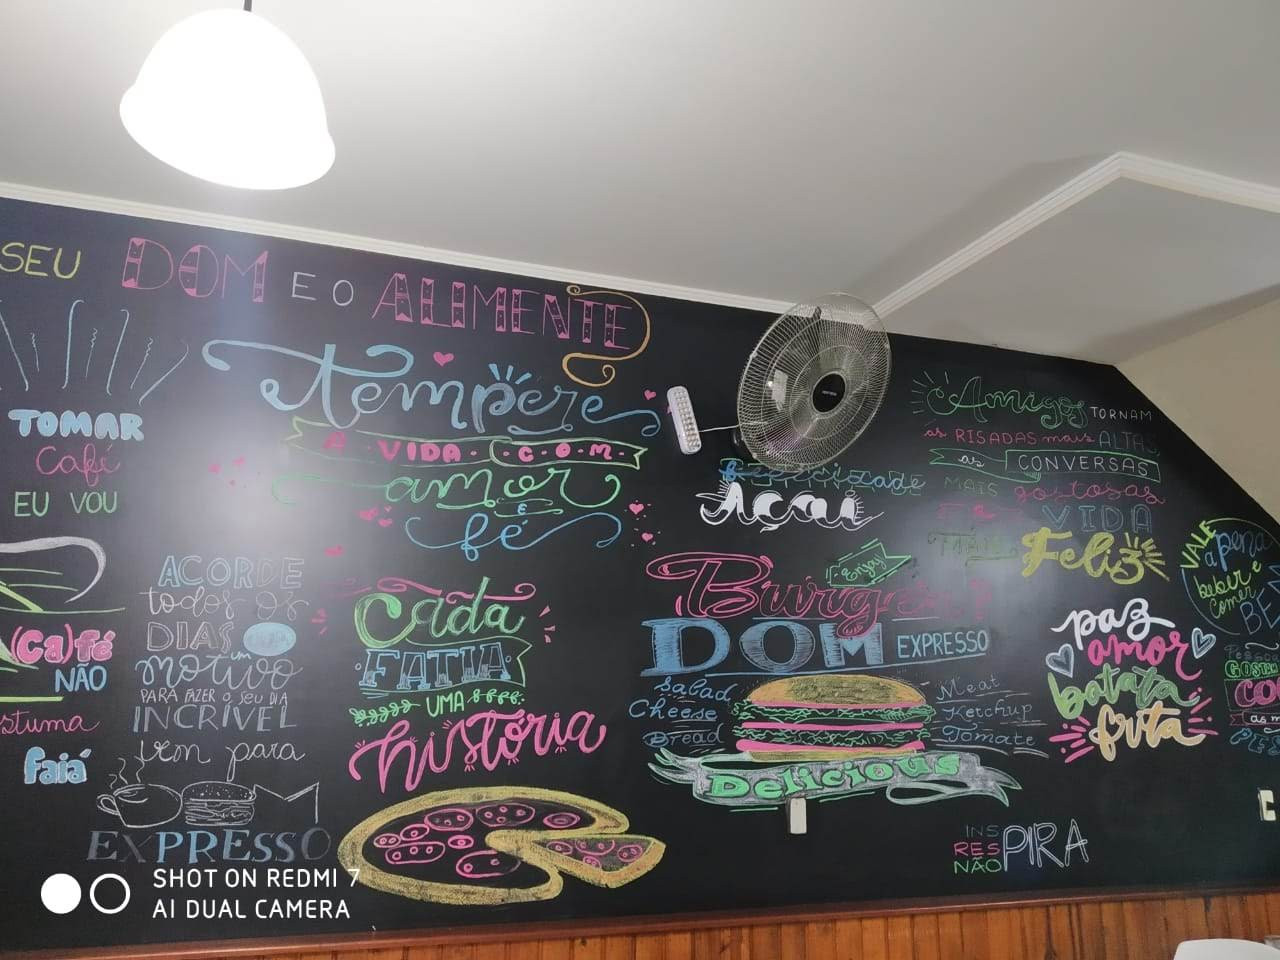 SEU DOM E O ALIMENTE
TOMAR
Café
EU VOU
(Ca)fé
NÃO
stuma
faiá
Tempere
A VIDA COM
amor
e
fé
ACORDE
todos os
DIAS
um
motivo
PARA FAZER O SEU DIA
INCRÍVEL
vem para
EXPRESSO
Cada
FATIA
UMA
história
Açaí
Enjoy
Burger
DOM EXPRESSO
Salad
Cheese
Bread
Meat
Ketchup
Tomate
Delicious
Amigos TORNAM
as RISADAS mais ALTAS
as CONVERSAS
MAIS gostosas
e a VIDA
MAIS Feliz
paz
amor
batata
frita
VALE
a pena
beber e
comer
BE
INS
RES PIRA
NÃO
SHOT ON REDMI 7
AI DUAL CAMERA